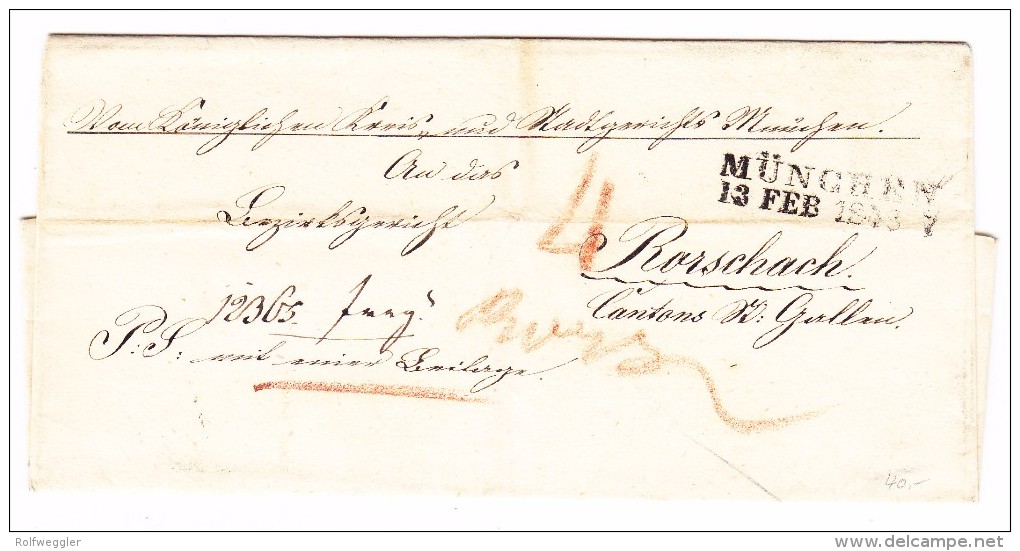 Vom Königlichen Kreis- und Stadtgerichts München.
An das
Bezirksgericht
MÜNCHEN
13 FEB
4
Rorschach.
Cantons St: Gallen.
12365.
P: S: mit einer Beilage.
40.-
Rolfweggler
www.delcampe.net